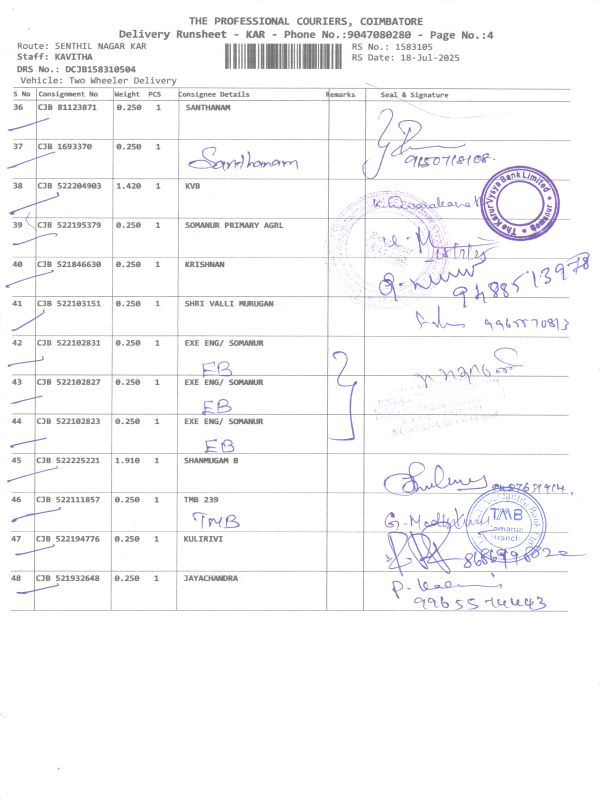 THE PROFESSIONAL COURIERS, COIMBATORE
Delivery Runsheet - KAR - Phone No.:9047080280 - Page No.:4
Route: SENTHIL NAGAR KAR RS No.: 1583105
Staff: KAVITHA RS Date: 18-Jul-2025
DRS No.: DCJB158310504
Vehicle: Two Wheeler Delivery
S No Consignment No Weight PCS Consignee Details Remarks Seal & Signature
36 CJB 81123871 0.250 1 SANTHANAM
37 CJB 1693370 0.250 1
Sandhanam 9150718108
38 CJB 522204903 1.420 1 KVB
The Karur Vysya Bank Limited
39 CJB 522195379 0.250 1 SOMANUR PRIMARY AGRL
40 CJB 521846630 0.250 1 KRISHNAN
9488513978
41 CJB 522103151 0.250 1 SHRI VALLI MURUGAN
9965570813
42 CJB 522102831 0.250 1 EXE ENG/ SOMANUR
EB
43 CJB 522102827 0.250 1 EXE ENG/ SOMANUR
EB
44 CJB 522102823 0.250 1 EXE ENG/ SOMANUR
EB
45 CJB 522225221 1.910 1 SHANMUGAM B
46 CJB 522111857 0.250 1 TMB 239
TMB
TMB
Somanur
Branch
47 CJB 522194776 0.250 1 KULIRIVI
48 CJB 521932648 0.250 1 JAYACHANDRA
9965574443